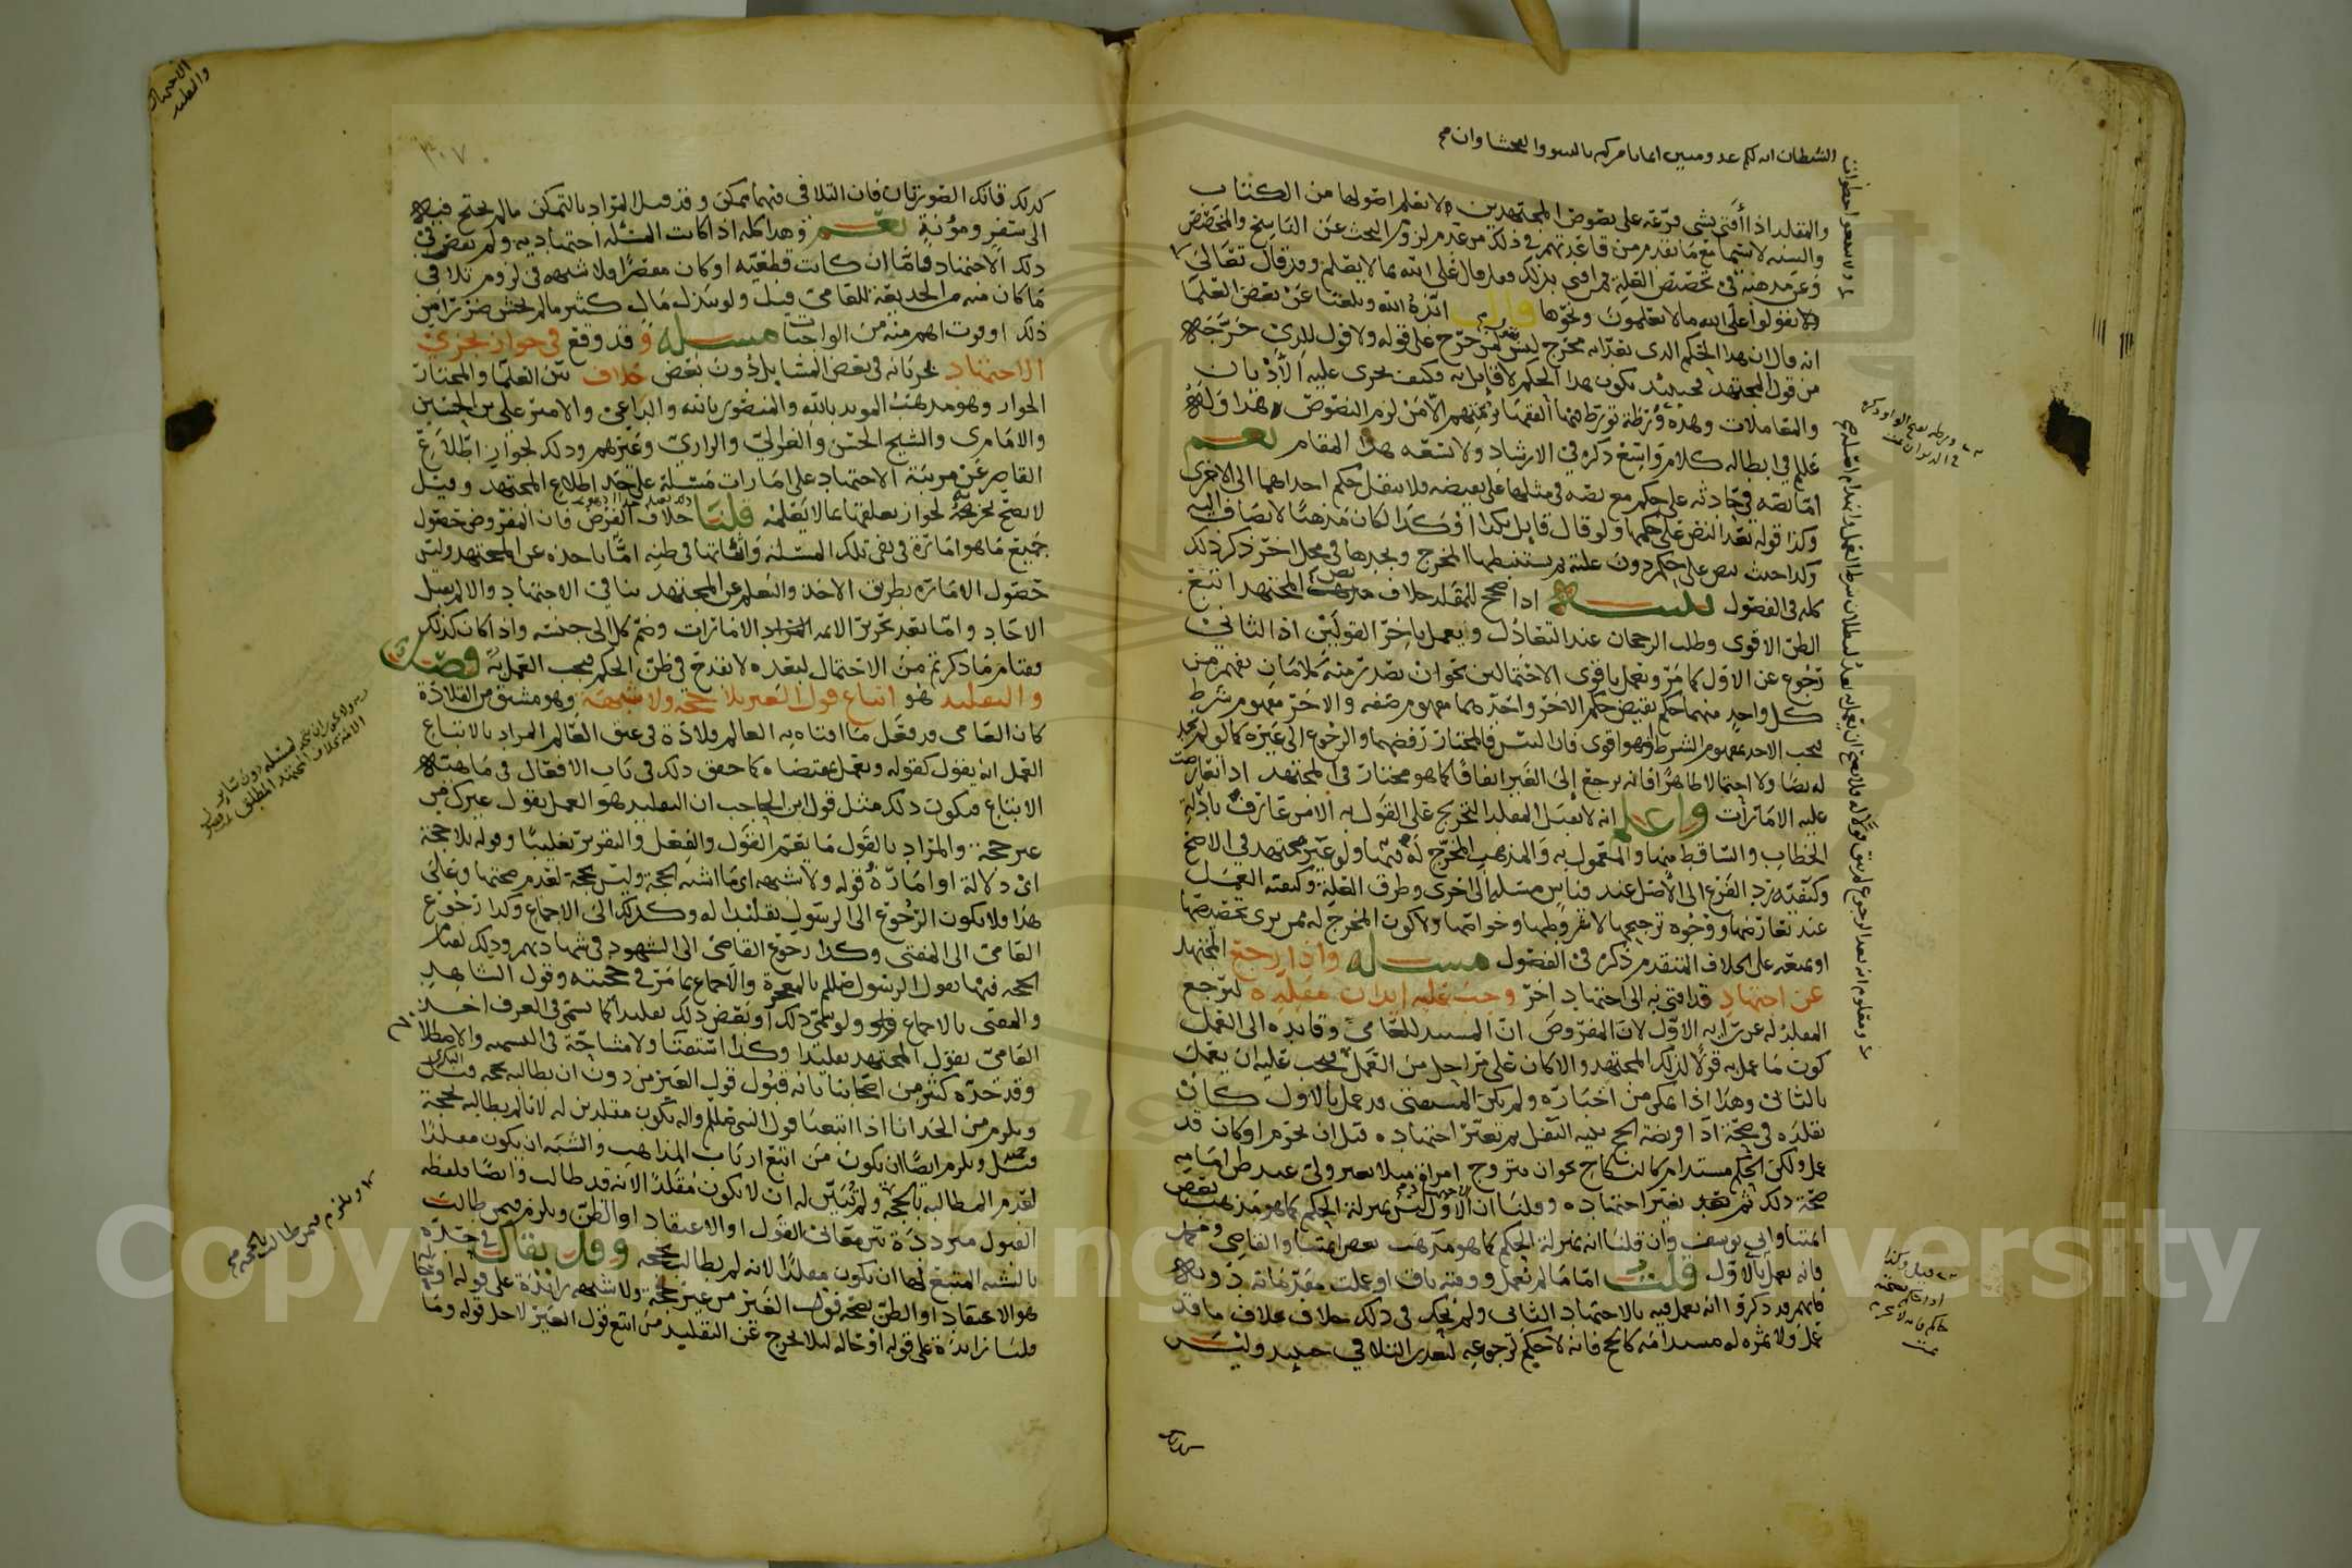 الشيطان انه لكم عدو مبين انما يامركم بالسوء والفحشا وان
والمقلد اذا أفتى بشي فرّعه على نصوص المجتهدين ولا يعلم اصولها من الكتاب
والسنه لا سيما مع ما تقدم من قاعدتهم في ذلك من عدم لزوم البحث عن الناسخ والمخصص
وعن مذهبه في تخصيص العلة فمن افتى بذلك فقد قال على الله بما لا يعلم وقد قال تعالى
ولا تقولوا على الله ما لا تعلمون ونحوها قال ايّده الله وبلغنا عن بعض العلما
انه قال ان هذا الحكم الذي نقرّ انه مخرج ليس بقول لمن خرّج على قوله ولا قول للذي خرّجه
من قول المجتهد فحينئذ يكون هذا الحكم لا قايل به وكيف يجرى عليه الأديان
والمعاملات وهذه ورطة تورّط فيها الفقها برمتهم الا من لزم النصوص، هذا وله
عليلم في ابطاله كلام واسع ذكره في الارشاد ولا يسعه هذا المقام نعم
امّا نصّه في حادثه على حكم مع نصه في مثلها على نقيضه فلا ينقل حكم احداهما الى الاخرى
وكذا قوله بعد النص على حكمها ولو قال قايل بكذا او كذا لكان مذهبًا لا يضاف اليه
وكذا حيث نص على حكم دون علته ثم يستنبطها المخرج ويجدها في محل اخر ذكر ذلك
كله في الفصول تنبيه اذا صح للمقلد خلاف نص المجتهد اتبع
الظن الاقوى وطلب الرجحان عند التعادل ويعمل باخر القولين اذا الثاني
رجوع عن الاول كما مرّ ويعمل باقوى الاحتمالين نحو ان يصدر منه كلامان يفهم من
كل واحد منهما حكم نقيض حكم الاخر واحدهما مفهوم صفه والاخر مفهوم شرط
فيجب الاخذ بمفهوم الشرط اذ هو اقوى فان التبس فالمختار رفضهما والرجوع الى غيره كما لو لم يجد
له نصًا ولا احتمالا ظاهرًا فانه يرجع إلى الغير اتفاقًا كما هو مختار في المجتهد اذا تعارضت
عليه الامارات واعلم انه لا يقبل المقلد التخريج على القول به الا من عارف بأدلة
الخطاب والساقط منها والمعمول به والمذهب المخرّج له فيها ولو غير مجتهد في الاصح
وكيفية رد الفرع الى الاصل عند قياس مسئلة الى اخرى وطرق العلة وكيفية العمل
عند تعارضها ووجوه ترجيحها لا شروطها وخواصها ولا كون المخرج له ممن يرى تخصيصها
او يمنعه على الخلاف المتقدم ذكره في الفصول مسئله واذا رجع المجتهد
عن اجتهاد قد افتى به الى اجتهاد اخر وجب عليه إيذان مقلده ليرجع
المقلد له عن رايه الاول لان المفروض ان المستند للعامي وقايده الى العمل
كون ما عمل به قولًا لذلك المجتهد والا كان على مراحل من العمل فيجب عليه ان يعمل
بالثاني وهذا اذا تمكن من اخباره ولم يكن المستفتى قد عمل بالاول كأن
يقلده في صحّة ادا فريضة الحج بنية النفل ثم تغير اجتهاده قبل ان يحرم او كان قد
عمل ولكن الحكم مستدام كالنكاح نحو ان يتزوج امراة مثلا بغير ولي عند ظن امامه
صحة ذلك ثم يتغير اجتهاده وقلنا ان الاول ليس بمنزلة الحكم كما هو مذهب بعض
ائمتنا وابي يوسف وان قلنا انه بمنزلة الحكم كما هو مذهب بعض ائمتنا والقاضي ومحمد
فانه يعمل بالاول قلت امّا ما لم يعمل ووقته باق او عملت مقدماته دونه
فانهم قد ذكروا انه يعمل فيه بالاجتهاد الثاني ولم يحك في ذلك خلاف بخلاف ما قد
عمل ولا ثمره له مستدامة كالحج فانه لا حكم لرجوعه لتعذر التلافي حينئذ وليس
ورطه بفتح الواو ذكره
في الديوان
قيل وكذا
اذا حكم بصحته
حاكم فانه لا يحرم
الاجتهاد
والتقليد
٣٠٧
كذلك تانك الصورتان فان التلافي فيهما ممكن وقد قيل المراد بالتمكن ما لم يحتج فيه
الى سفر ومؤنة نعم وهذا كله اذا كانت المسئله اجتهاديه ولم يقصر في
ذلك الاجتهاد فاما إن كانت قطعيّه او كان مقصرًا فلا شبهه في لزوم تلافي
ما كان منه من الخديعة للعامي قيل ولو ببذل مال كثير ما لم يخش ضررا من
ذلك او فوت اهم منه من الواجبات مسئله وقد وقع في جواز تجزي
الاجتهاد بجريانه في بعض المسايل دون بعض خلاف بين العلما والمختار
الجواز وهو مذهب المويد بالله والمنصور بالله والداعي والامير علي بن الحسين
والامام ى والشيخ الحسن والغزالي والرازي وغيرهم وذلك لجواز اطلاع
القاصر عن مرتبة الاجتهاد على امارات مسئلة على حد اطلاع المجتهد وقيل
لا يصح تجزيه لجواز تعلقها بما لا يعلمه قلنا خلاف الفرض فان المفروض حصول
جميع ما هو امارة في نفي تلك المسئلة واثباتها في ظنه امّا باخذه عن المجتهد وليس
حصول الامارة بطريق الاخذ والتعلم عن المجتهد ينافي الاجتهاد والا لم يقبل
الاحاد وامّا بعد تحرير الايمه الامارات وضم كل الى جنسه واذا كان كذلك
فقيام ما ذكرتم من الاحتمال لبعده لا يقدح في ظن الحكم فيجب العمل به فصل
والتقليد هو اتباع قول الغير بلا حجة ولا شبهة وهو مشتق من القلادة
كان العامي قد جعل ما افتاه به العالم قلادة في عنق العالم المراد بالاتباع
العمل انه يقول كقوله ويعمل بمقتضاه كما حقق ذلك في باب الافعال في ماهيّة
الاتباع فيكون ذلك مثل قول ابن الحاجب ان التقليد هو العمل بقول غيرك من
غير حجة والمراد بالقول ما يعم القول والفعل والتقرير تغليبًا وقوله بلا حجة
اي دلالة او امارة قوله ولا شبهه اي ما اشبه الحجة وليس بحجة لعدم صحتها وعلى
هذا فلا يكون الرجوع الى الرسول تقليدا له وكذلك الى الاجماع وكذا رجوع
العامي الى المفتي وكذا رجوع القاضي الى الشهود في شهادتهم وذلك لقيام
الحجه فيها بقول الرسول صلعلم بالمعجزة والاجماع بما مرّ في حجيته وقول الشاهد
والمفتى بالاجماع ولو سمّي ذلك أو بعض ذلك تقليدا كما يسمى في العرف اخذ
العامي بقول المجتهد تقليدا وكذا استفتا ولا مشاحّة في التسميه والاصطلاح
وقد حدّه كثير من اصحابنا بانه قبول قول الغير من دون ان يطالبه بحجه قيل
ويلزم من الحد انا اذا اتبعنا قول النبي صلعلم واله نكون مقلدين له لانا لم نطالبه بحجة
قيل ويلزم ايضًا ان يكون من اتبع ارباب المذاهب والشبه ان يكون مقلدًا
لعدم المطالبه بالحجة ولم تُبيّن له ان لا يكون مُقلّدًا لانه قد طالب وايضًا فلفظه
القبول متردده بين معاني القول او الاعتقاد او الظن ويلزم فيمن طالب
بالشبه المتبع لها ان يكون مقلدًا لانه لم يطالب بحجه وقد يقال في حدّه
هو الاعتقاد او الظن بصحه قول الغير من غير حجة ولا شبهه زائدة على قوله
قلنا زايدة على قوله او حاله ليلا يخرج عن التقليد من اتبع قول الغير لاجل قوله وما
ويلزم فيمن طالب بالحجه